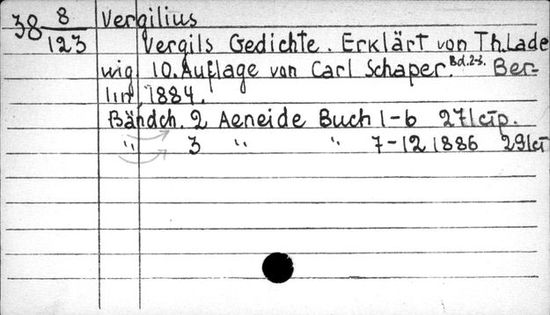 38 8/123 Vergilius
Vergils Gedichte. Erklärt von Th. Lade
wig 10. Auflage von Carl Schaper. Bd. 2-3. Ber-
lin 1884.
Bändch. 2 Aeneide Buch 1-6 271 стр.
" 3 " " 7-12 1886 291 ст